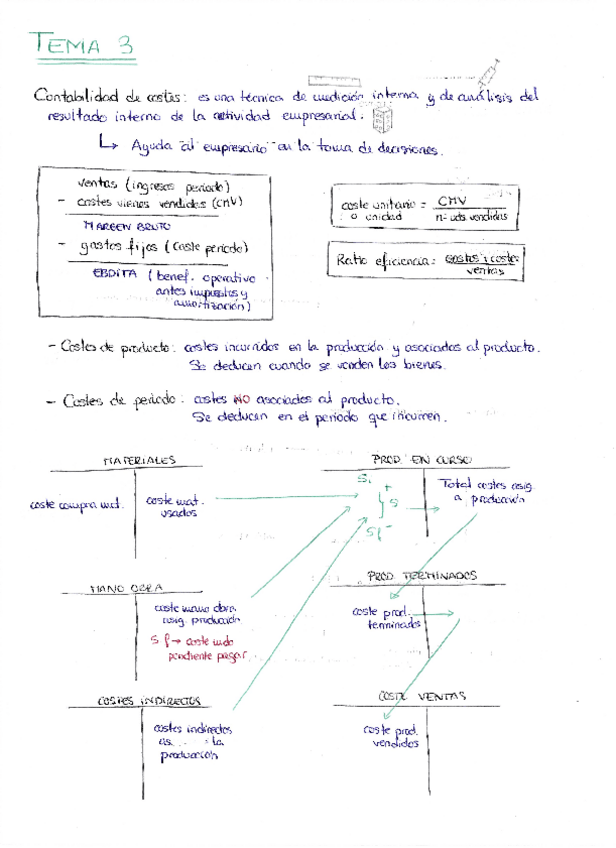 TEMA 3
Contabilidad de costes: es una técnica de medición interna y de análisis del
resultado interno de la actividad empresarial.
↳ Ayuda al empresario en la toma de decisiones.
ventas (ingresos periodo)
- costes vienes vendidos (CMV)
MARGEN BRUTO
- gastos fijos (coste periodo)
EBDITA (benef. operativo
antes impuestos y
amortización)
coste unitario = CMV
o unidad nº uds. vendidas
Ratio eficiencia = gastos y costes
ventas
- Costes de producto: costes incurridos en la producción y asociados al producto.
Se deducen cuando se venden los bienes.
- Costes de periodo: costes NO asociados al producto.
Se deducen en el periodo que incurren.
MATERIALES
coste compra mat.
coste mat.
usados
PROD. EN CURSO
Si
+
S
Sf
-
Total costes asig.
a producción
MANO OBRA
coste mano obra
asig. producción
Sf → coste mdo
pendiente pagar.
PROD. TERMINADOS
coste prod.
terminados
COSTES INDIRECTOS
costes indirectos
la
producción
COSTE VENTAS
coste prod.
vendidos